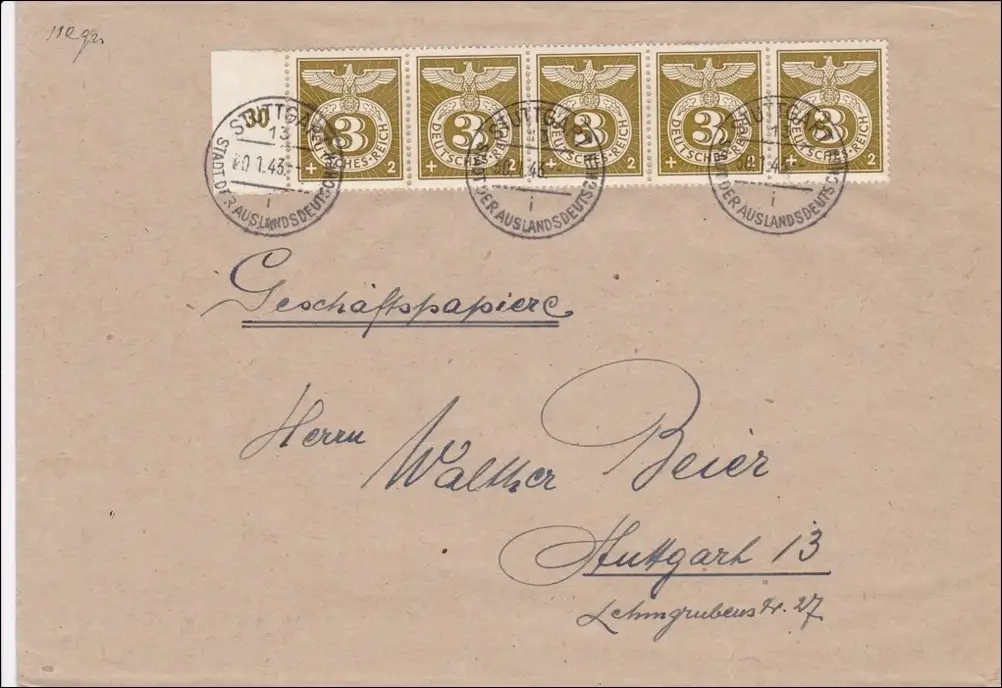 110 gr.
30
3 DEUTSCHES REICH + 2
3 DEUTSCHES REICH + 2
3 DEUTSCHES REICH + 2
3 DEUTSCHES REICH + 2
3 DEUTSCHES REICH + 2
STUTTGART 13
30.1.43.--
i
STADT DER AUSLANDSDEUTSCHEN
STUTTGART
30.1.43.--
i
STADT DER AUSLANDSDEUTSCHEN
STUTTGART 13
i
STADT DER AUSLANDSDEUTSCHEN
Geschäftspapiere
Herrn
Walther Beier
Stuttgart 13
Lehmgrubenstr. 27